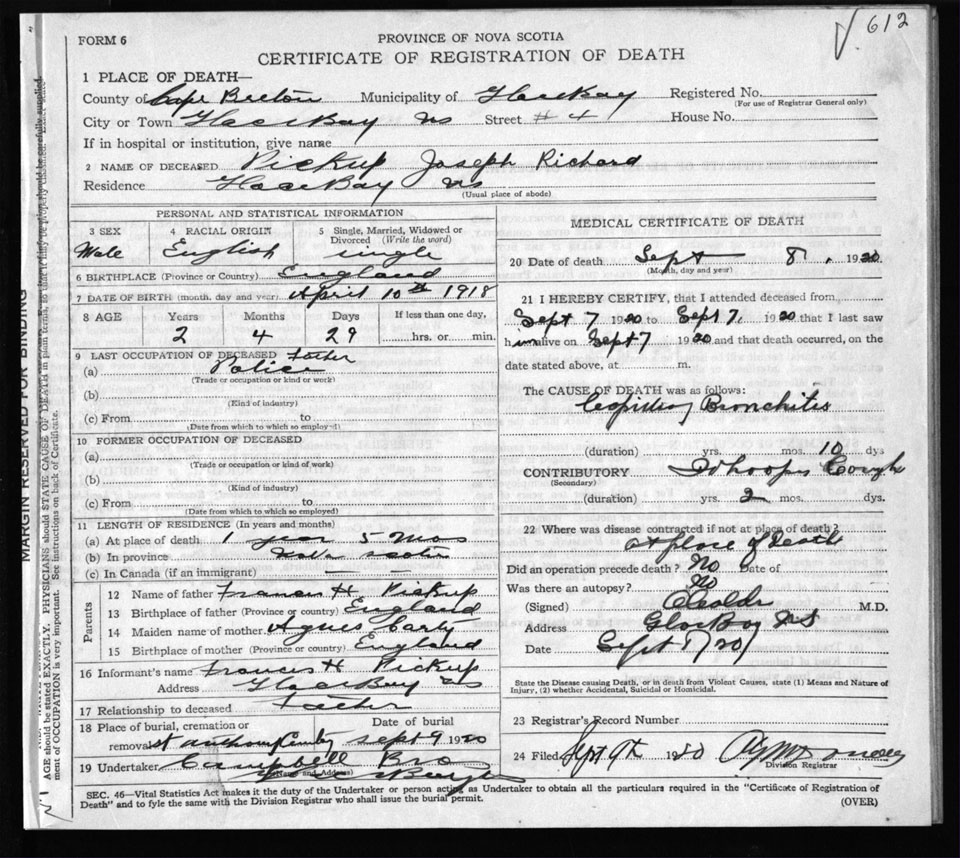 612
FORM 6
PROVINCE OF NOVA SCOTIA
CERTIFICATE OF REGISTRATION OF DEATH
1 PLACE OF DEATH—
County of Cape Breton Municipality of Glace Bay Registered No.
(For use of Registrar General only)
City or Town Glace Bay NS Street #4 House No.
If in hospital or institution, give name
2 NAME OF DECEASED Pickup Joseph Richard
Residence Glace Bay NS
(Usual place of abode)
PERSONAL AND STATISTICAL INFORMATION
3 SEX 4 RACIAL ORIGIN 5 Single, Married, Widowed or Divorced (Write the word)
Male English ingle
6 BIRTHPLACE (Province or Country) England
7 DATE OF BIRTH (month, day and year) April 10th 1918
8 AGE Years Months Days If less than one day,
2 4 29 hrs. or min.
9 LAST OCCUPATION OF DECEASED Father
(a) Police
(Trade or occupation or kind or work)
(b)
(Kind of industry)
(c) From to
(Date from which to which so employed)
10 FORMER OCCUPATION OF DECEASED
(a)
(Trade or occupation or kind of work)
(b)
(Kind of industry)
(c) From to
(Date from which to which so employed)
11 LENGTH OF RESIDENCE (In years and months)
(a) At place of death 1 year 5 Mos
(b) In province Nova Scotia
(c) In Canada (if an immigrant)
Parents
12 Name of father Francis H. Pickup
13 Birthplace of father (Province or country) England
14 Maiden name of mother Agnes Carty
15 Birthplace of mother (Province or country) England
16 Informant's name Francis H Pickup
Address Glace Bay NS
17 Relationship to deceased Father
18 Place of burial, cremation or removal Date of burial
St Anthony Sept 9 1920
19 Undertaker Campbell Bro
(Name and Address)
MEDICAL CERTIFICATE OF DEATH
20 Date of death Sept 8, 1920
(Month, day and year)
21 I HEREBY CERTIFY, that I attended deceased from
Sept 7 1920 to Sept 7, 1920 that I last saw
him alive on Sept 7 1920 and that death occurred, on the
date stated above, at m.
The CAUSE OF DEATH was as follows:
Bronchitis
(duration) yrs. mos. 10 dys
CONTRIBUTORY Cough
(Secondary)
(duration) yrs. 2 mos. dys.
22 Where was disease contracted if not at place of death?
at place of Death
Did an operation precede death? No Date of
Was there an autopsy? No
(Signed) M.D.
Address Glace Bay NS
Date Sept
State the Disease causing Death, or in death from Violent Causes, state (1) Means and Nature of
Injury, (2) whether Accidental, Suicidal or Homicidal.
23 Registrar's Record Number
24 Filed Sept 9th 1920
Division Registrar
SEC. 46—Vital Statistics Act makes it the duty of the Undertaker or person acting as Undertaker to obtain all the particulars required in the "Certificate of Registration of
Death" and to fyle the same with the Division Registrar who shall issue the burial permit.
(OVER)
MARGIN RESERVED FOR BINDING
AGE should be stated EXACTLY. PHYSICIANS should STATE CAUSE OF DEATH in plain terms, so that it may be properly classed.
ment of OCCUPATION is very important. See instructions on back of Certificate.